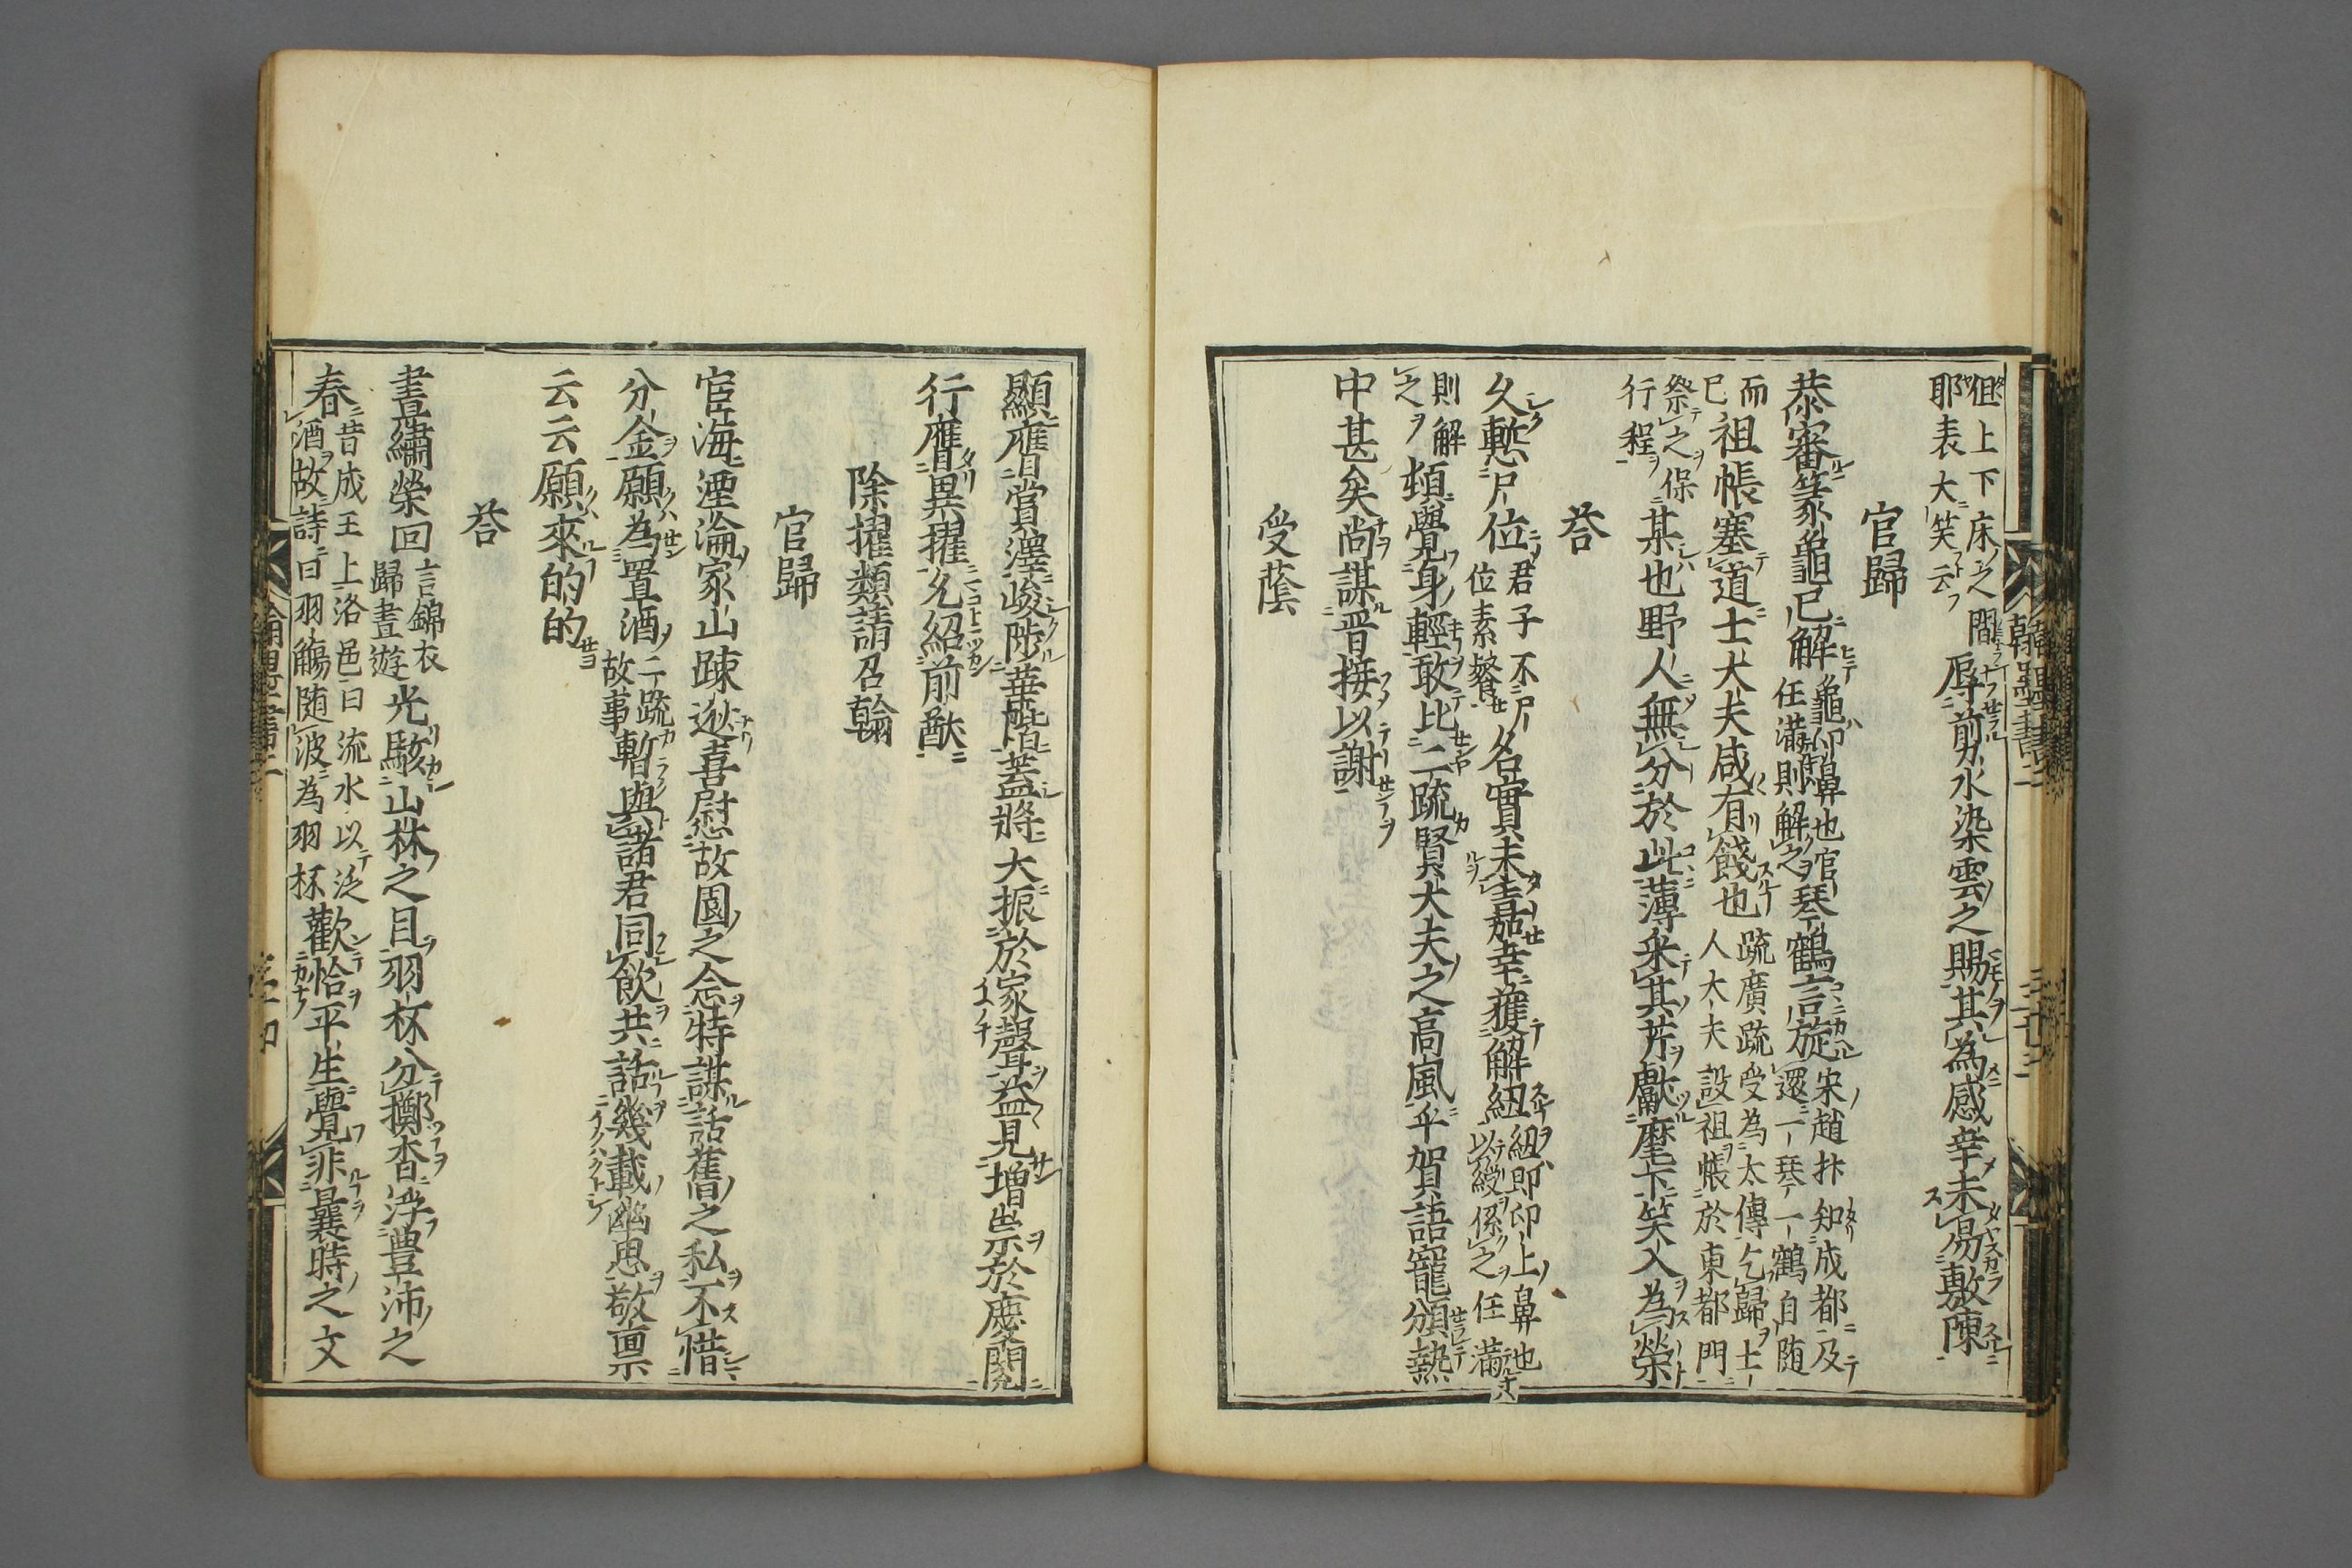 但上下床之間
耶表大笑云
辱剪水染雲之賜其為感幸未易敷陳
官歸
恭審篆龜已解
龜印鼻也官
任滿則解之
琴鶴言旋
宋趙抃知成都及
還一琴一鶴自随
而
已
祖帳塞道士大夫咸有餞也
疏廣疏受為太傳乞歸士
人大夫設祖帳於東都門
祭之保
行程
某也野人無分於此薄采其芹獻麾下笑入為榮
荅
久慙尸位
君子不尸
位素餐
名實未嘉幸獲解紐
紐即印上鼻也
以綬係之任滿
則解
之
頓覺身輕敢比二疏賢大夫之高風乎賀語寵頒熱
中甚矣尚謀晋接以謝
受蔭
翰墨書二
三十三
顯膺賞澤峻陟華階蓋將大振於家聲益見增崇於慶閥
行膺異擢允紹前猷
除擢類請召翰
官歸
宦海湮淪家山踈逖喜慰故園之念特謀話舊之私不惜
分金願為置酒
二疏
故事
暫與諸君同飲共話幾載幽思敬稟
云云願來的的
荅
晝繡榮回
言錦衣
歸晝遊
光駭山林之目羽杯分擲杳浮豊沛之
春
昔成王上洛邑曰流水以泛
酒故詩曰羽觴随波為羽杯
歡恰平生覺非曩時之文